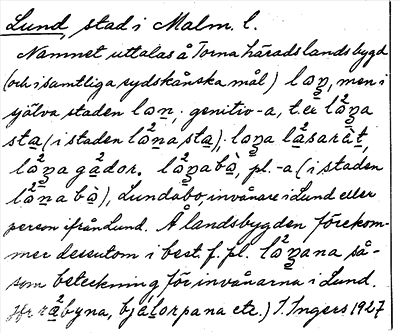 Lund, stad i Malm. l.
Namnet uttalas å Torna härads landsbygd
(och i samtliga sydskånska mål) lɔn̪, men i
själva staden lɔn; genitiv -a, t.ex lɔ²n̪a
sta (i staden lɔ²na sta), lɔn̪a la²sarät,
lɔ²n̪a ga²dor. lɔ²n̪abɔ̀, pl. -a (i staden
lɔ²na bɔ̀), Lundabo, invånare i Lund eller
person ifrån Lund. Å landsbygden förekom-
mer dessutom i best. f. pl. lɔ²n̪ana så-
som beteckning för invånarna i Lund.
Jfr ra²byna, bjä²lorpana etc.) I. Ingers 1927